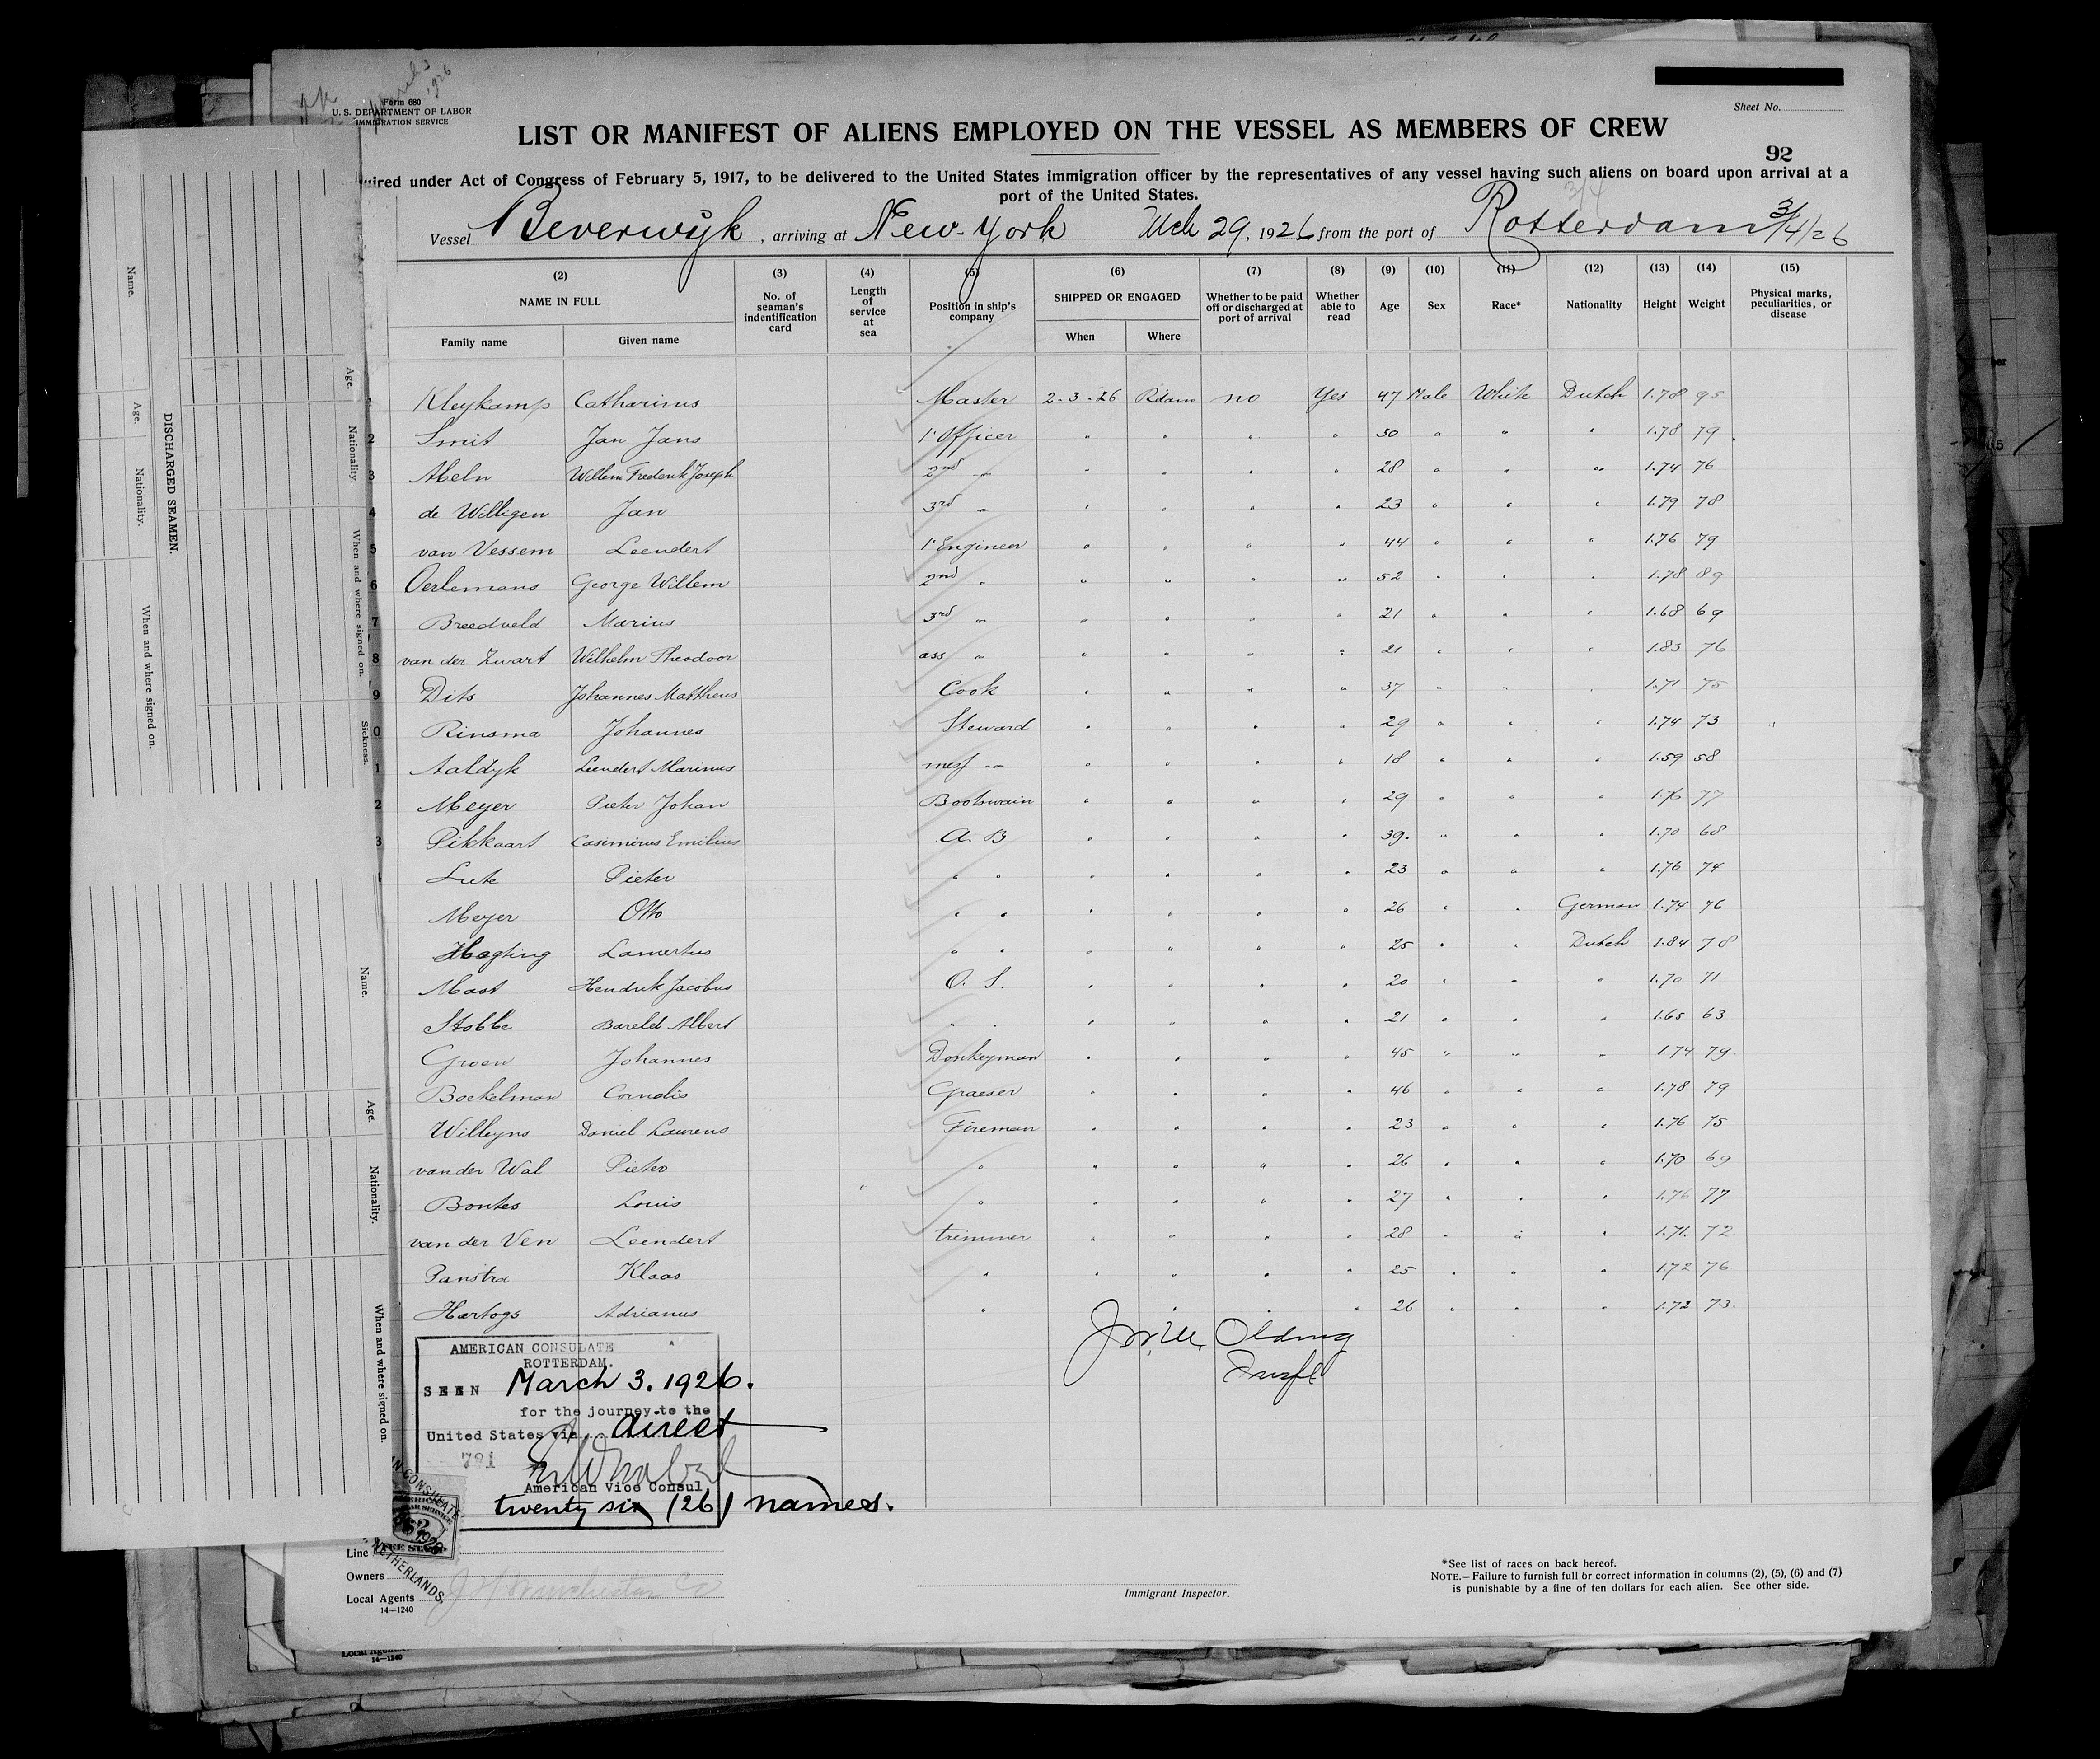 Form 680
U. S. DEPARTMENT OF LABOR
IMMIGRATION SERVICE
Sheet No.
LIST OR MANIFEST OF ALIENS EMPLOYED ON THE VESSEL AS MEMBERS OF CREW
92
uired under Act of Congress of February 5, 1917, to be delivered to the United States immigration officer by the representatives of any vessel having such aliens on board upon arrival at a
port of the United States.
3/4
Vessel Beverwijk, arriving at New-York Mch 29, 1926 from the port of Rotterdam 3/4/26
(2) (3) (4) (5) (6) (7) (8) (9) (10) (11) (12) (13) (14) (15)
NAME IN FULL No. of seaman's indentification card Length of service at sea Position in ship's company SHIPPED OR ENGAGED Whether to be paid off or discharged at port of arrival Whether able to read Age Sex Race* Nationality Height Weight Physical marks, peculiarities, or disease
Family name Given name When Where
1 Kleykamp Catharinus Master 2-3-26 Rdam no Yes 47 Male White Dutch 1.78 95
2 Smit Jan Jans 1e Officer " " " " 30 " " " 1.78 79
3 Abeln Willem Frederik Joseph 2nd " " " " " 28 " " " 1.74 76
4 de Willigen Jan 3rd " " " " " 23 " " " 1.79 78
5 van Vessem Leendert 1e Engineer " " " " 44 " " " 1.76 79
6 Oerlemans George Willem 2nd " " " " " 52 " " " 1.78 89
7 Breedveld Marius 3rd " " " " " 21 " " " 1.68 69
8 van der Zwart Wilhelm Theodoor ass " " " " " 21 " " " 1.83 76
9 Dits Johannes Mattheus Cook " " " " 37 " " " 1.71 75
0 Rinsma Johannes Steward " " " " 29 " " " 1.74 73
1 Aaldyk Leendert Marinus mess " " " " " 18 " " " 1.59 58
2 Meyer Pieter Johan Bootswain " " " " 29 " " " 1.76 77
3 Pikkaart Casimirus Emilius A. B " " " " 39. " " " 1.70 68
Lute Pieter " " " " " " 23 " " " 1.76 74
Meyer Otto " " " " " " 26 " " German 1.74 76
Hagting Lamertus " " " " " " 25 " " Dutch 1.84 78
Mast Hendrik Jacobus O. S. " " " " 20 " " " 1.70 71
Stobbe Bareld Albert " " " " " " 21 " " " 1.65 63
Groen Johannes Donkeyman " " " " 45 " " " 1.74 79
Boekelman Cornelis Graeser " " " " 46 " " " 1.78 79
Willeyns Daniel Laurens Fireman " " " " 23 " " " 1.76 75
van der Wal Pieter " " " " " 26 " " " 1.70 69
Bontes Louis " " " " " 27 " " " 1.76 77
van der Ven Leendert tremmer " " " " 28 " " " 1.71. 72
Panstra Klaas " " " " " 25 " " " 1.72 76
Hartogs Adrianus " " " " 26 " " " 1.72 73.
Olding
AMERICAN CONSULATE
ROTTERDAM.
SEEN March 3. 1926.
for the journey to the
United States via direct
791
American Vice Consul
twenty six (26) names.
FEE STAMP
NETHERLANDS
Line
Owners
Local Agents J H Winchester Co
14—1240
Immigrant Inspector.
*See list of races on back hereof.
NOTE.—Failure to furnish full or correct information in columns (2), (5), (6) and (7)
is punishable by a fine of ten dollars for each alien. See other side.
DISCHARGED SEAMEN.
Name.
Age.
Nationality.
When and where signed on.
Age.
Nationality.
When and where signed on.
Sickness.
Name.
Age.
Nationality.
When and where signed on.
Local Agents
14—1240